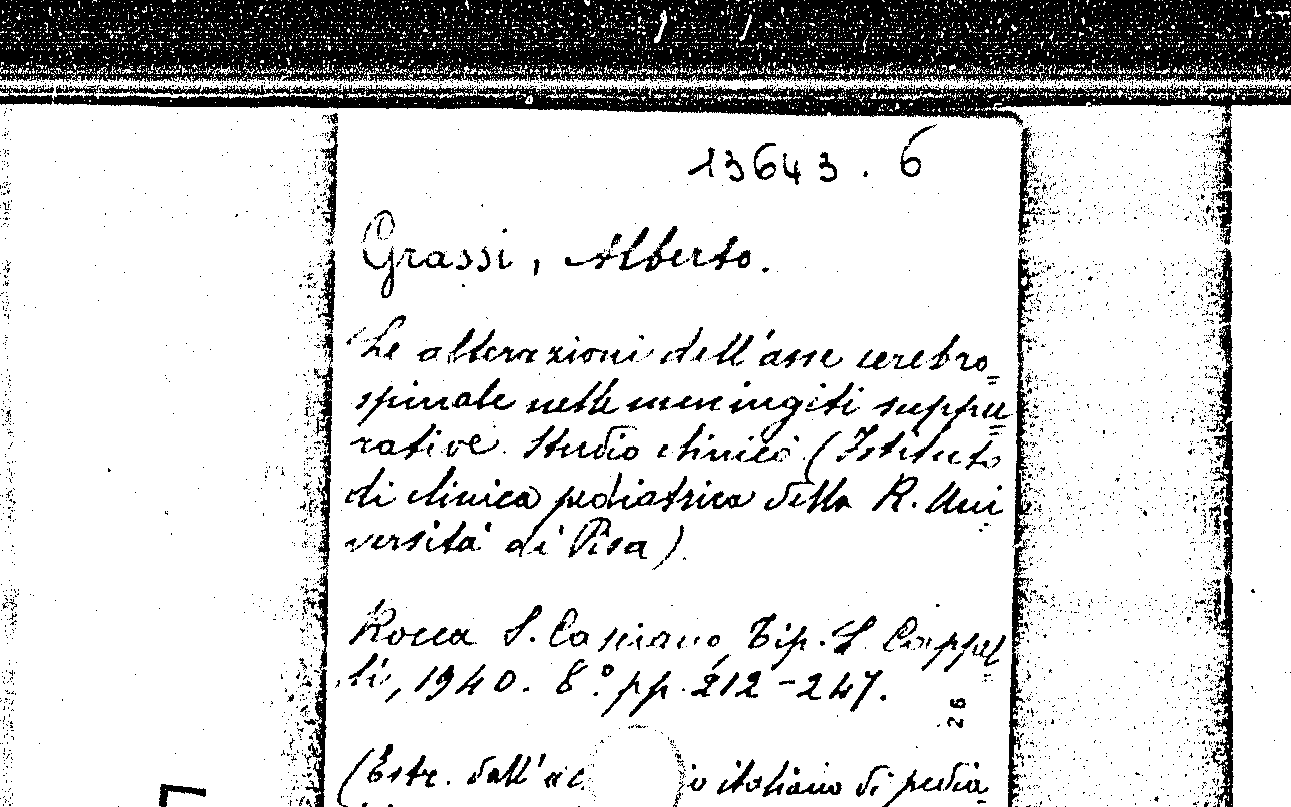 13643.6
Grassi, Alberto.
Le alterazioni dell'asse cerebro=
spinale nelle meningiti suppu=
rative. Studio clinico (Istituto
di clinica pediatrica della R. Uni=
versità di Pisa).
Rocca S. Casciano, Tip. L. Cappel=
li, 1940. 8.° pp. 212-247.
26
(Estr. dall' italiano di pedia=